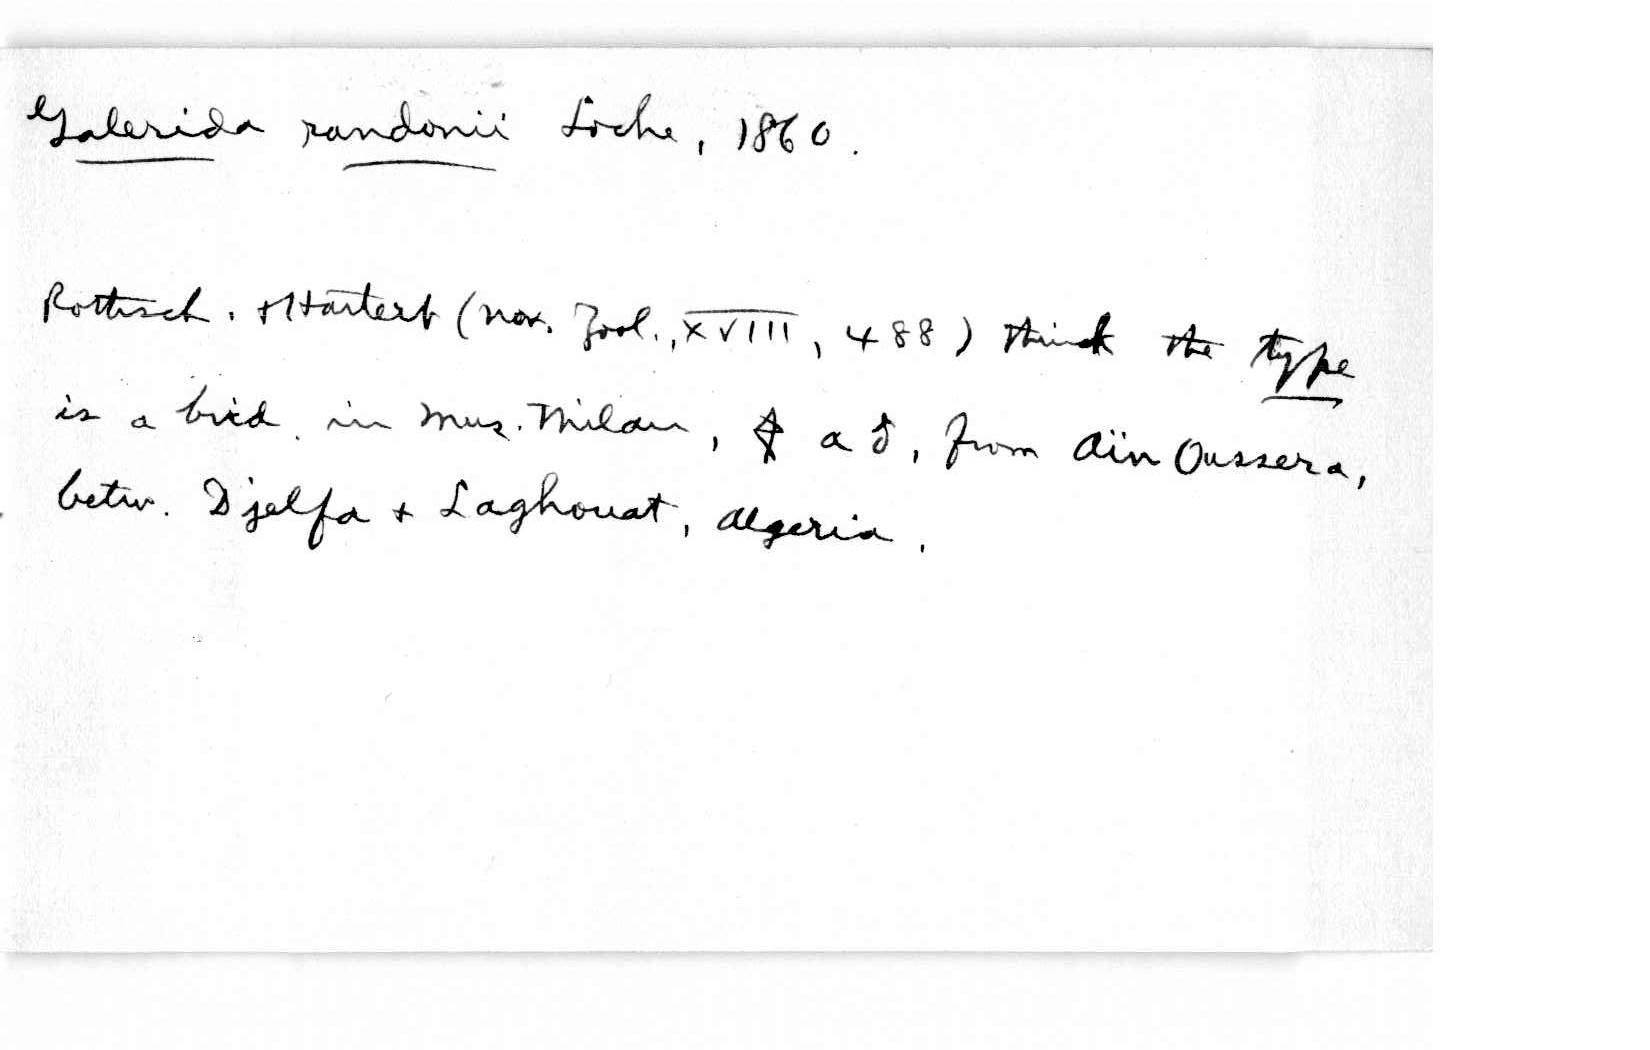 Galerida randonii Loche, 1860.
Rothsch. + Hartert (Nov. Zool., XVIII, 488) think the type
is a bird in Mus. Milan, a ♂, from Aïn Oussera,
betw. Djelfa + Laghouat, Algeria.